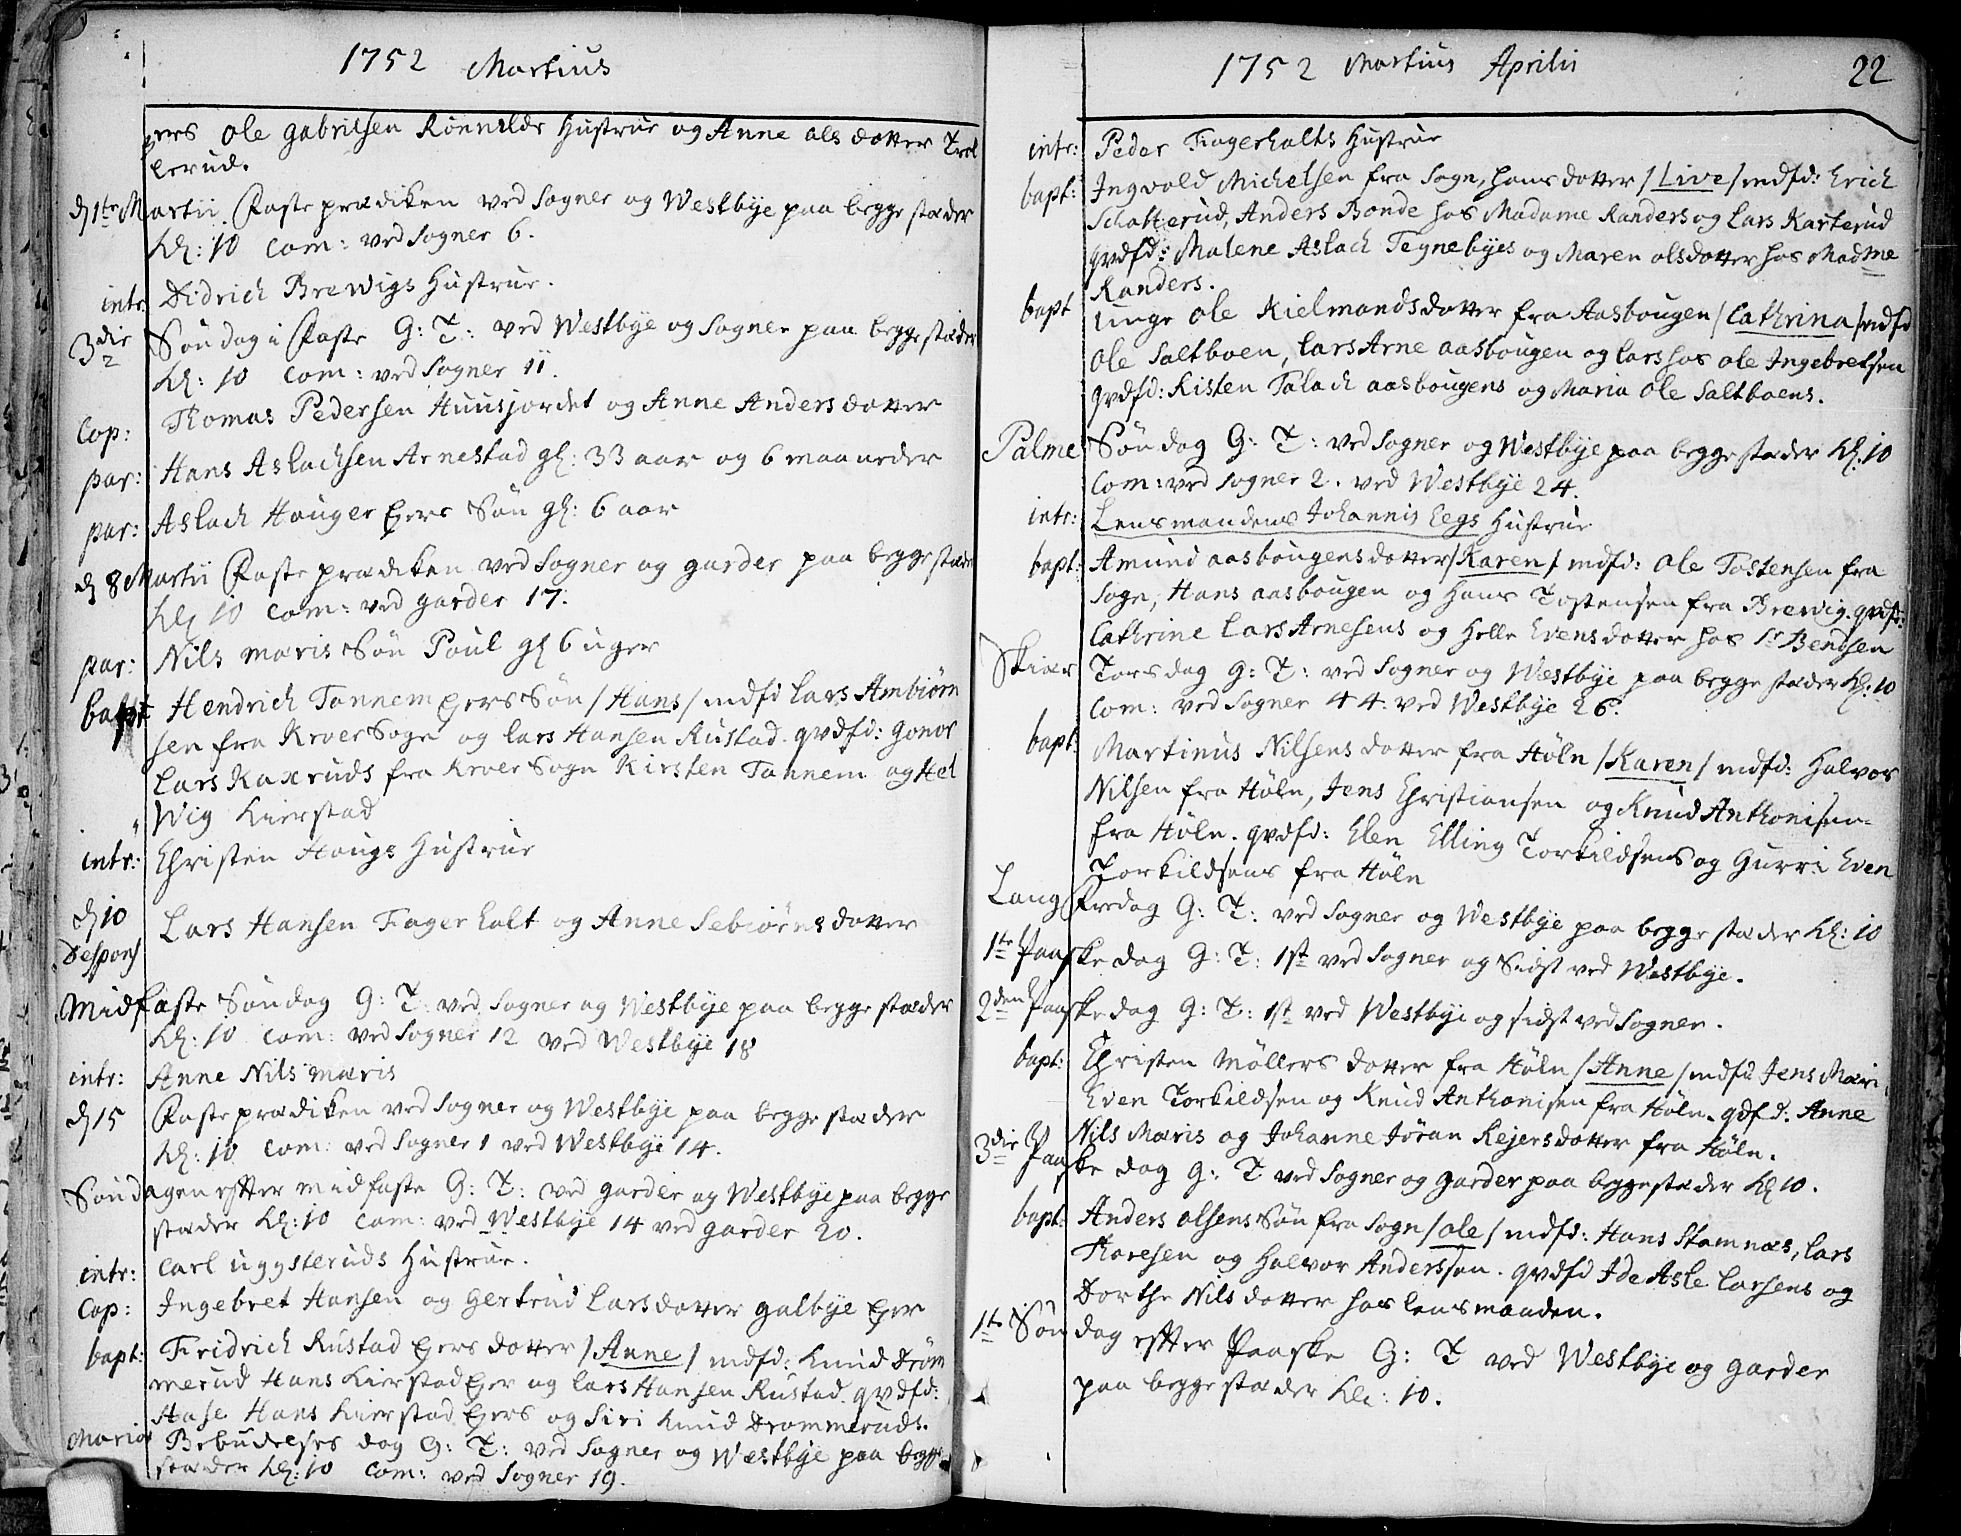 1752 Martius
Ejers Ole Gabrielsen Rönnilds Hustrue og Anne Ols dotter Trol
lerud.
d 1te Martii Fasteprædiken ved Sogner og Westbye paa begge stæder
Kl: 10 Com: ved Sogner 6.
intr. Didrich Brewigs Hustrue.
3die Söndag i Faste G: T: ved Westbye og Sogner paa begge stæder
Kl: 10 Com: ved Sogner 11.
Cop: Thomas Pedersen Huusjordet og Anne Anders dotter
par: Hans Aslachsen Arnestad gl: 33 aar og 6 maaneder
par: Aslach Hauger Ejers Sön gl: 6 aar
d 8 Martii Fasteprædiken ved Sogner og garder paa begge stæder
Kl 10 Com: ved garder 17.
par: Nils mæris Sön Poul gl 6 uger
bapt Hendrich Tannem Ejers Sön / Hans / mdfd Lars Ambiörn
sen fra Kroer Sogn og Lars Hansen Rustad. qvdfd: Gonor
Lars Kaxruds fra Kroer Sogn Kirsten Tannem og Hel
wig Kierstad
intr: Christen Haugs Hustrue
d 10
Despons Lars Hansen Fagerholt og Anne Sebiörns dotter
Midfaste Söndag G: T: ved Sogner og Westbye paa begge stæder
Kl: 10 Com: ved Sogner 12 ved Westbye 18
intr: Anne Nils mæris
d 15 Fasteprædiken ved Sogner og Westbye paa begge stæder
Kl: 10 Com: ved Sogner 1 ved Westbye 14.
Söndagen effter midfaste G: T: ved garder og Westbye paa begge
stæder Kl: 10 Com: ved Westbye 14 ved garder 20.
intr: Carl uggsteruds Hustrue.
Cop: Ingebret Hansen og Gertrud Lars dotter galbye Ejer
bapt: Fridrich Rustad Ejers dotter / Anne / mdfd: Knud Dröm
merud Hans Kierstad Ejer og Lars Hansen Rustad. qvdfd:
Aase Hans Kierstad Ejers og Siri Knud Drömmeruds.
Mariæ Bebudelses dag G: T: ved Sogner og Westbye paa begge
stæder Kl: 10 Com: ved Sogner 19.
1752 Martius Aprilis 22
intr: Peder Fagerholts Hustrue
bapt: Ingvold Michelsen fra Sogn, hans dotter / Live / mdfd: Erich
Schatterud, Anders Bonde hos Madame Randers og Lars Karterud
qvdfd: Malene Aslach Tegnebyes og Maren Olsdotter hos Madme
Randers.
bapt unge Ole Kielmands dotter fra Aasbougen / Cathrina / mdfd
Ole Saltboen, Lars Arne aasbougen og Lars hos Ole Ingebretsen
qvdfd: Kisten Talach aasbougens og Maria Ole Saltboens.
Palme Söndag G: T: ved Sogner og Westbye paa begge stæder Kl: 10
Com: ved Sogner 2. ved Westbye 24.
intr: Lensmandens Johannis Eegs Hustrue
bapt: Amund aasbougens dotter / Karen / mdfd: Ole Tostensen fra
Sogn, Hans aasbougen og Hans Tostensen fra Brewig. qvdfd:
Cathrine Lars Arnesens og Helle Evens dotter hos Sr Bendsen
Skiær Torsdag G: T: ved Sogner og Westbye paa begge stæder Kl: 10
Com: ved Sogner 44. ved Westbye 26.
bapt: Martinus Nilsens dotter fra Höln / Karen / mdfd: Halvor
Nilsen fra Höln, Jens Christiansen og Knud Anthonisen
fra Höln. qvdfd: Elen Elling Torkildsens og Gurri Even
Torkildsens fra Höln
Lang Fredag G: T: ved Sogner og Westbye paa begge stæder Kl: 10
1te Paaske dag G: T: 1st ved Sogner og Sidst ved Westbye.
2den Paaske dag G: T: 1st ved Westbye og sidst ved Sogner.
bapt: Christen Möllers dotter fra Höln / Anne / mdfd Jens Mæri
Even Torkildsen og Knud Anthonisen fra Höln. qdfd: Anne
Nils Mæris og Johanne Jöran Rejersdotter fra Höln.
3die Paaske dag G: T ved Sogner og Garder paa begge stæder Kl 10.
bapt: Anders Olsens Sön fra Sogn / Ole / mdfd: Hans Stamnæs, Lars
Thoresen og Halvor Anderssen. qvdfd Ide Asle Larsens og
Dorthe Nils dotter hos lensmanden.
1te Söndag effter Paaske G: T ved Westbye og garder
paa begge stæder Kl: 10.